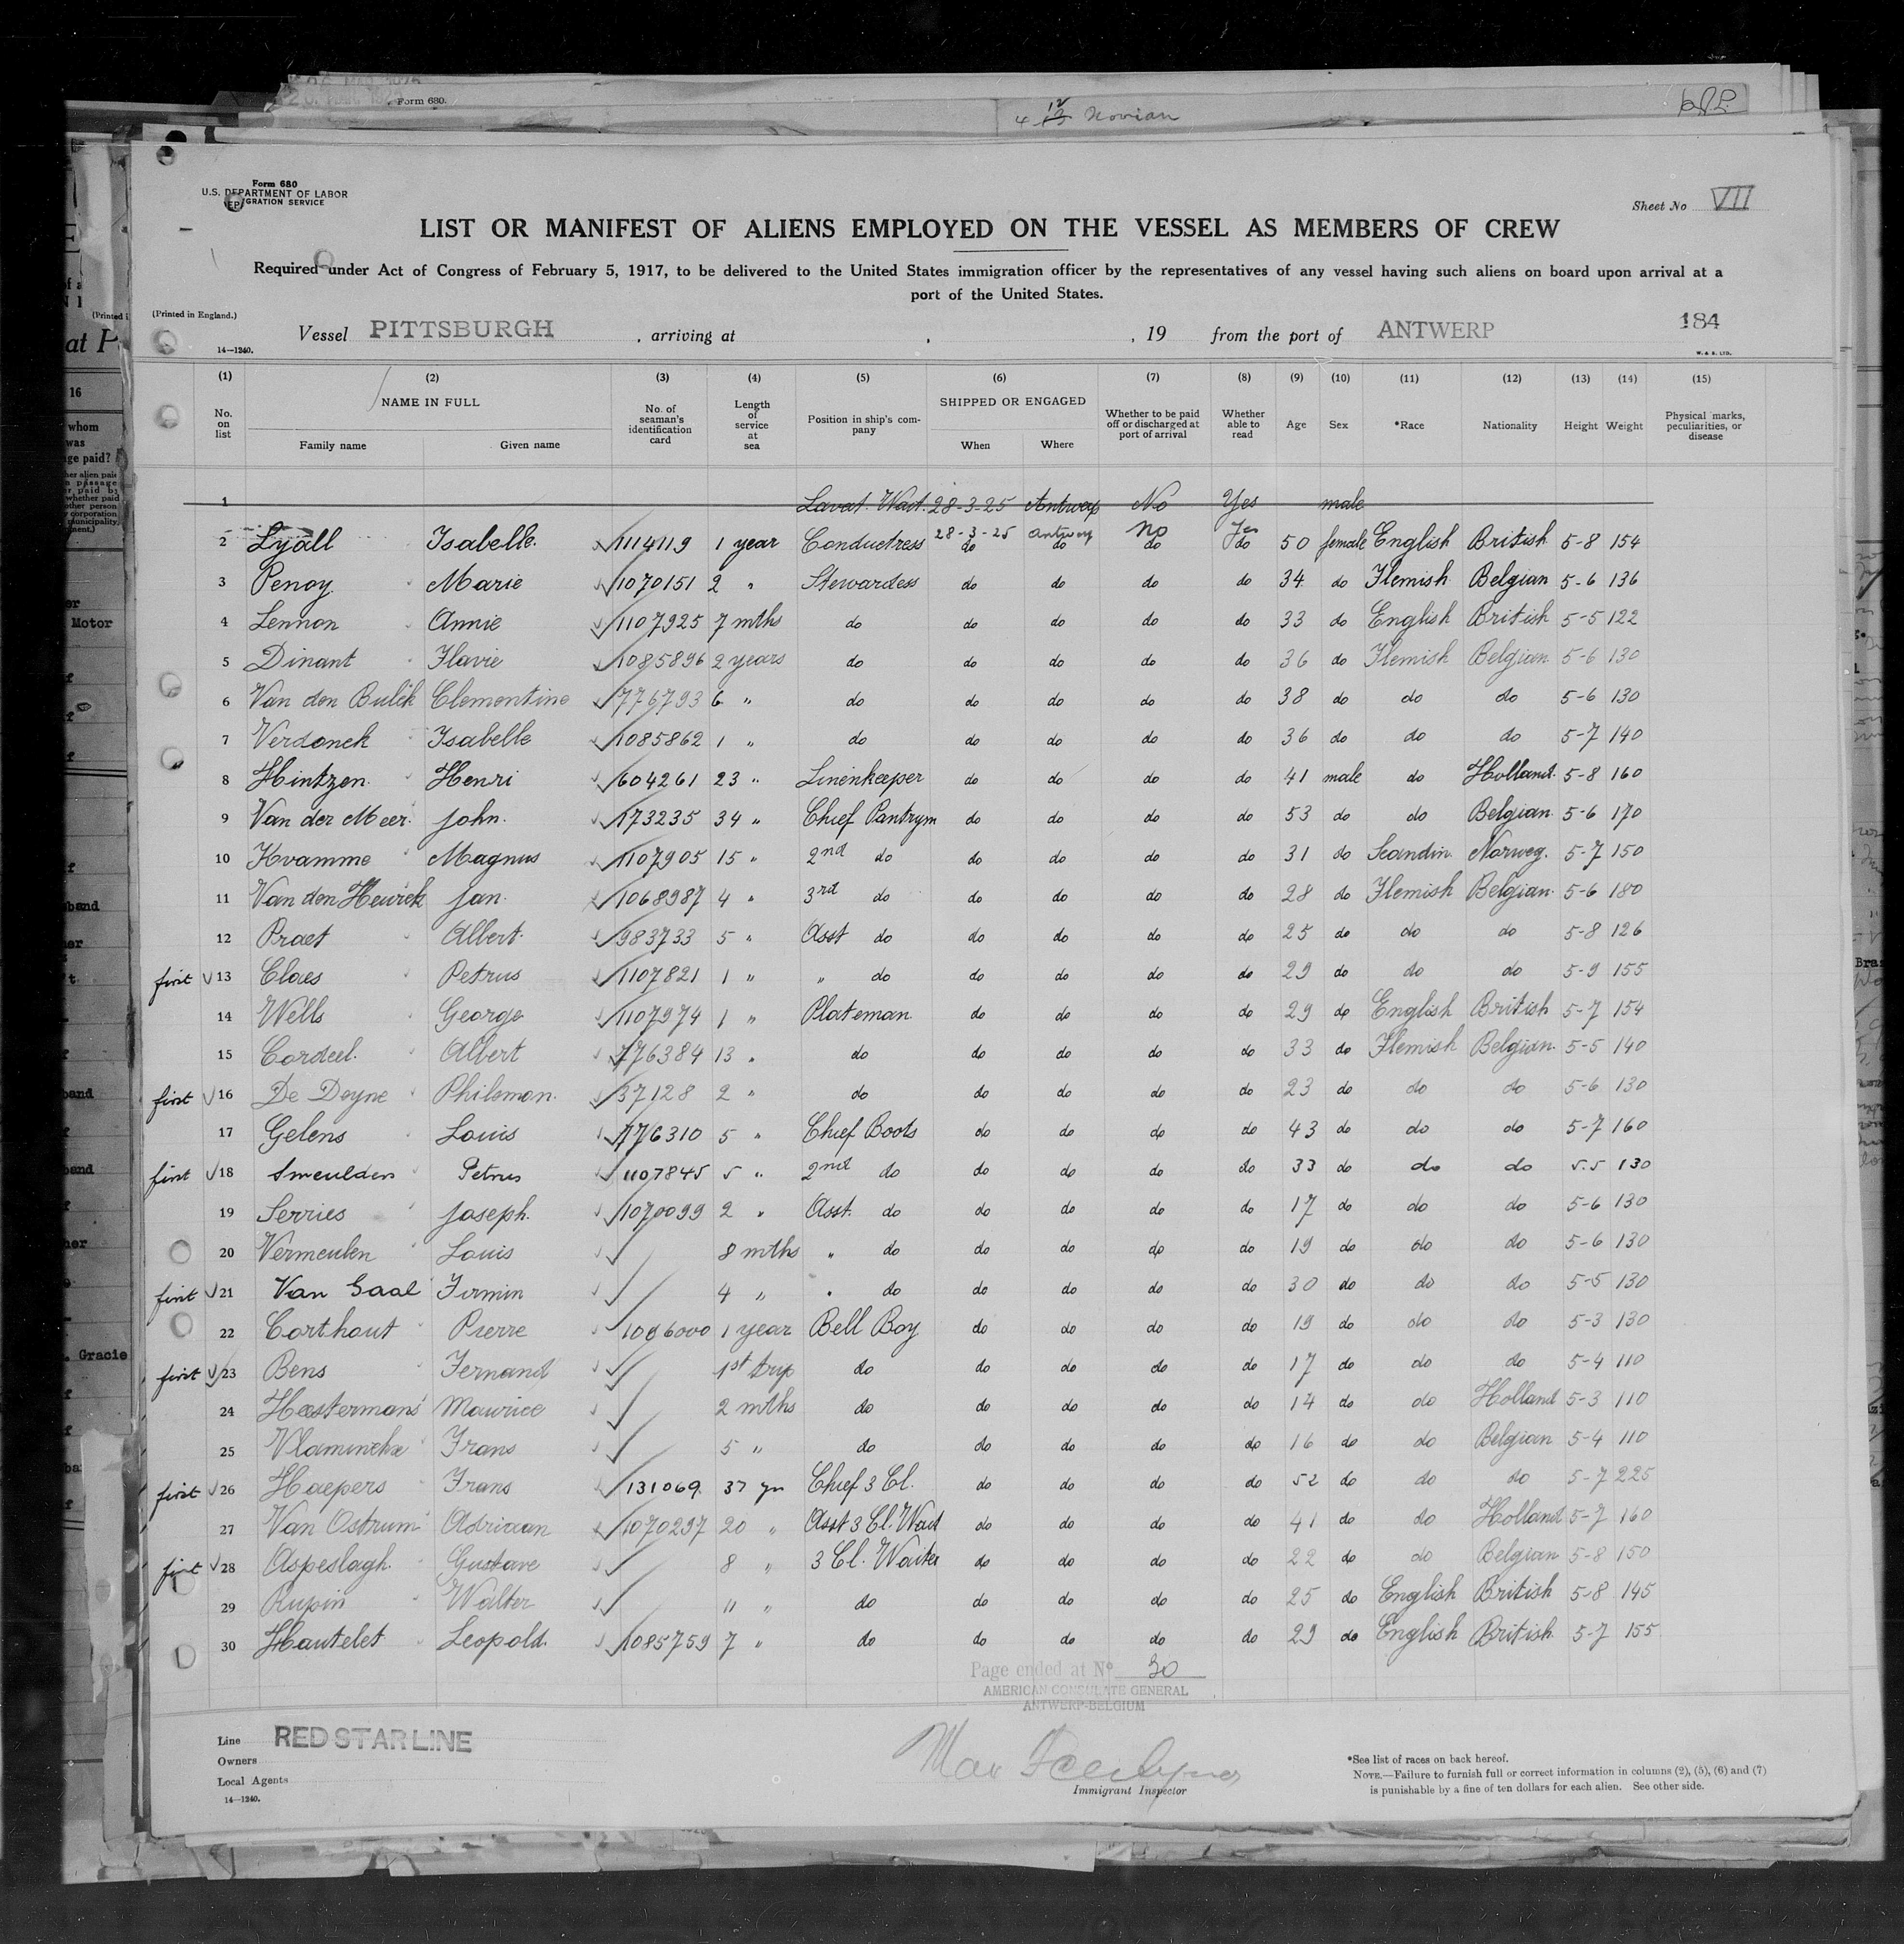 Form 680.
4 Novian
Form 680
U.S. DEPARTMENT OF LABOR
GRATION SERVICE
Sheet No VII
LIST OR MANIFEST OF ALIENS EMPLOYED ON THE VESSEL AS MEMBERS OF CREW
Required under Act of Congress of February 5, 1917, to be delivered to the United States immigration officer by the representatives of any vessel having such aliens on board upon arrival at a
port of the United States.
(Printed in England.)
Vessel PITTSBURGH , arriving at , , 19 from the port of ANTWERP 184
14—1240. W. & S. LTD.
(1) (2) (3) (4) (5) (6) (7) (8) (9) (10) (11) (12) (13) (14) (15)
No. on list NAME IN FULL Family name Given name No. of seaman's identification card Length of service at sea Position in ship's company SHIPPED OR ENGAGED When Where Whether to be paid off or discharged at port of arrival Whether able to read Age Sex *Race Nationality Height Weight Physical marks, peculiarities, or disease
1 Lavat. Wait. 28-3-25 Antwerp No Yes male
2 Lyall Isabelle. 1114119 1 year Conductress 28-3-25 do Antwerp do No do Yes do 50 female English British 5-8 154
3 Penoy Marie 1070151 2 " Stewardess do do do do 34 do Flemish Belgian 5-6 136
4 Lennon Annie 1107925 7 mths do do do do do 33 do English British 5-5 122
5 Dinant Flavie 1085896 2 years do do do do do 36 do Flemish Belgian 5-6 130
6 Van den Bulck Clementine 776793 6 " do do do do do 38 do do do 5-6 130
7 Verdonck Isabelle 1085862 1 " do do do do do 36 do do do 5-7 140
8 Hintzen Henri 604261 23 " Linenkeeper do do do do 41 male do Holland. 5-8 160
9 Van der Meer John. 173235 34 " Chief Pantrym do do do do 53 do do Belgian 5-6 170
10 Kvamme Magnus 1107905 15 " 2nd do do do do do 31 do Scandin. Norweg. 5-7 150
11 Van den Heurck Jan. 1068987 4 " 3rd do do do do do 28 do Flemish Belgian 5-6 180
12 Praet Albert. 983733 5 " Asst do do do do do 25 do do do 5-8 126
first 13 Claes Petrus 1107821 1 " " do do do do do 29 do do do 5-9 155
14 Wells George 1107974 1 " Plateman do do do do 29 do English British 5-7 154
15 Cordeel. Albert 776384 13 " do do do do do 33 do Flemish Belgian. 5-5 140
first 16 De Deyne Philemon. 37128 2 " do do do do do 23 do do do 5-6 130
17 Gelens Louis 776310 5 " Chief Boots do do do do 43 do do do 5-7 160
first 18 Smeulders Petrus 1107845 5 " 2nd do do do do do 33 do do do 5.5 130
19 Serries Joseph. 1070099 2 " Asst. do do do do do 17 do do do 5-6 130
20 Vermeulen Louis 8 mths " do do do do do 19 do do do 5-6 130
first 21 Van Gaal Firmin 4 " " do do do do do 30 do do do 5-5 130
22 Corthout Pierre 1096000 1 year Bell Boy do do do do 19 do do do 5-3 130
first 23 Bens Fernand 1st trip do do do do do 17 do do do 5-4 110
24 Heestermans Maurice 2 mths do do do do do 14 do do Holland 5-3 110
25 Vlaminckx Frans 5 " do do do do do 16 do do Belgian 5-4 110
first 26 Haepers Frans 131069. 37 yrs Chief 3 Cl. do do do do 52 do do do 5-7 225
27 Van Ostrum Adriaan 1070297 20 " Asst 3 Cl. Wait do do do do 41 do do Holland 5-7 160
first 28 Aspeslagh. Gustave 8 " 3 Cl. Waiter do do do do 22 do do Belgian 5-8 150
29 Rupin Walter 11 " do do do do do 25 do English British 5-8 145
30 Hautelet Leopold. 1085759 7 " do do do do do 29 do English British 5-7 155
Page ended at No 30
AMERICAN CONSULATE GENERAL
ANTWERP-BELGIUM
Line RED STAR LINE
Owners
Local Agents
14—1240.
Immigrant Inspector
*See list of races on back hereof.
NOTE.—Failure to furnish full or correct information in columns (2), (5), (6) and (7)
is punishable by a fine of ten dollars for each alien. See other side.